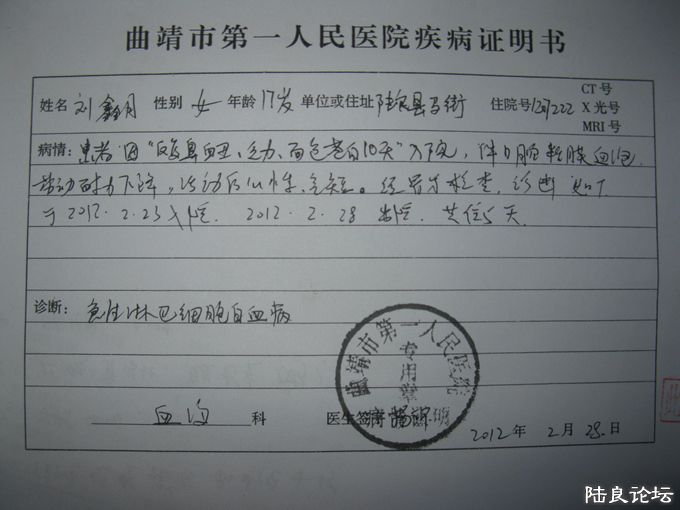 曲靖市第一人民医院疾病证明书
姓名 刘鑫月 性别 女 年龄 17岁 单位或住址 陆良县马街 住院号 CT号
X光号
MRI号
病情：患者因“反复鼻出血、乏力、面色苍白10天”入院，伴口腔粘膜血泡
劳动耐力下降，活动后心悸、气短。经骨穿检查，诊断如下
于2012.2.23入院. 2012.2.28出院. 共住5天.
诊断：急性淋巴细胞白血病
曲靖市第一人民医院
专用章
血液 科 医生签字
证明
2012年2月28日.
陆良论坛